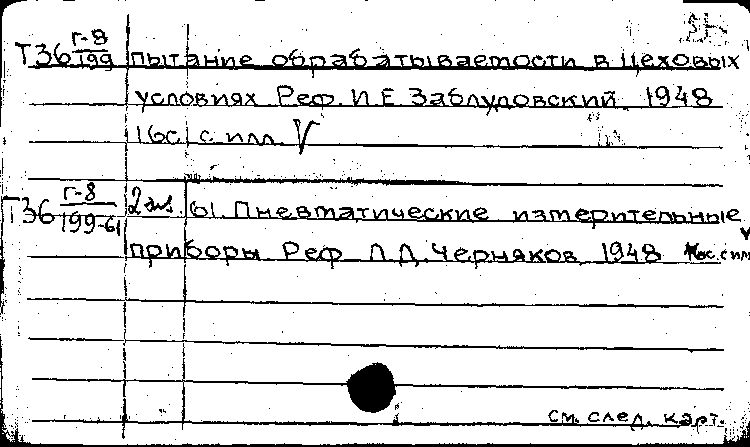 Т36 г-8/199 пытание обрабатываемости в цеховых
условиях Реф. И.Е. Заблудовский 1948
16с с илл. V
Т36 г-8/199-61 2 экз. 61. Пневматические измерительные
приборы Реф Л.Д. Черняков 1948 16с. с илл
см. след. карт.